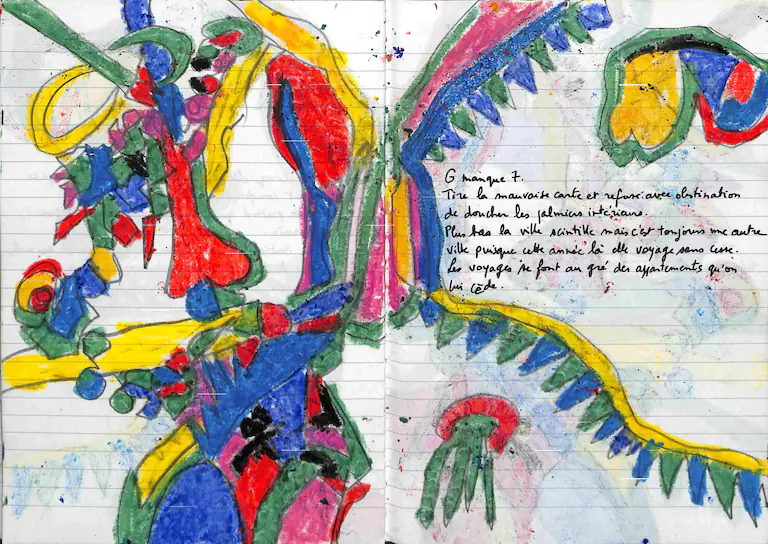 G manque 7.
Tire la mauvaise carte et refuse avec obstination
de doucher les palmiers intérieurs.
Plus bas la ville scintille mais c'est toujours une autre
ville puisque cette année là elle voyage sans cesse.
Les voyages se font au gré des appartements qu'on
lui cède.